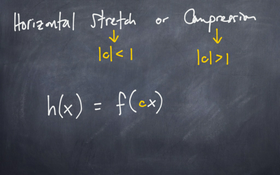 Horizontal Stretch or Compression
|c| < 1 |c| > 1
h(x) = f(cx)